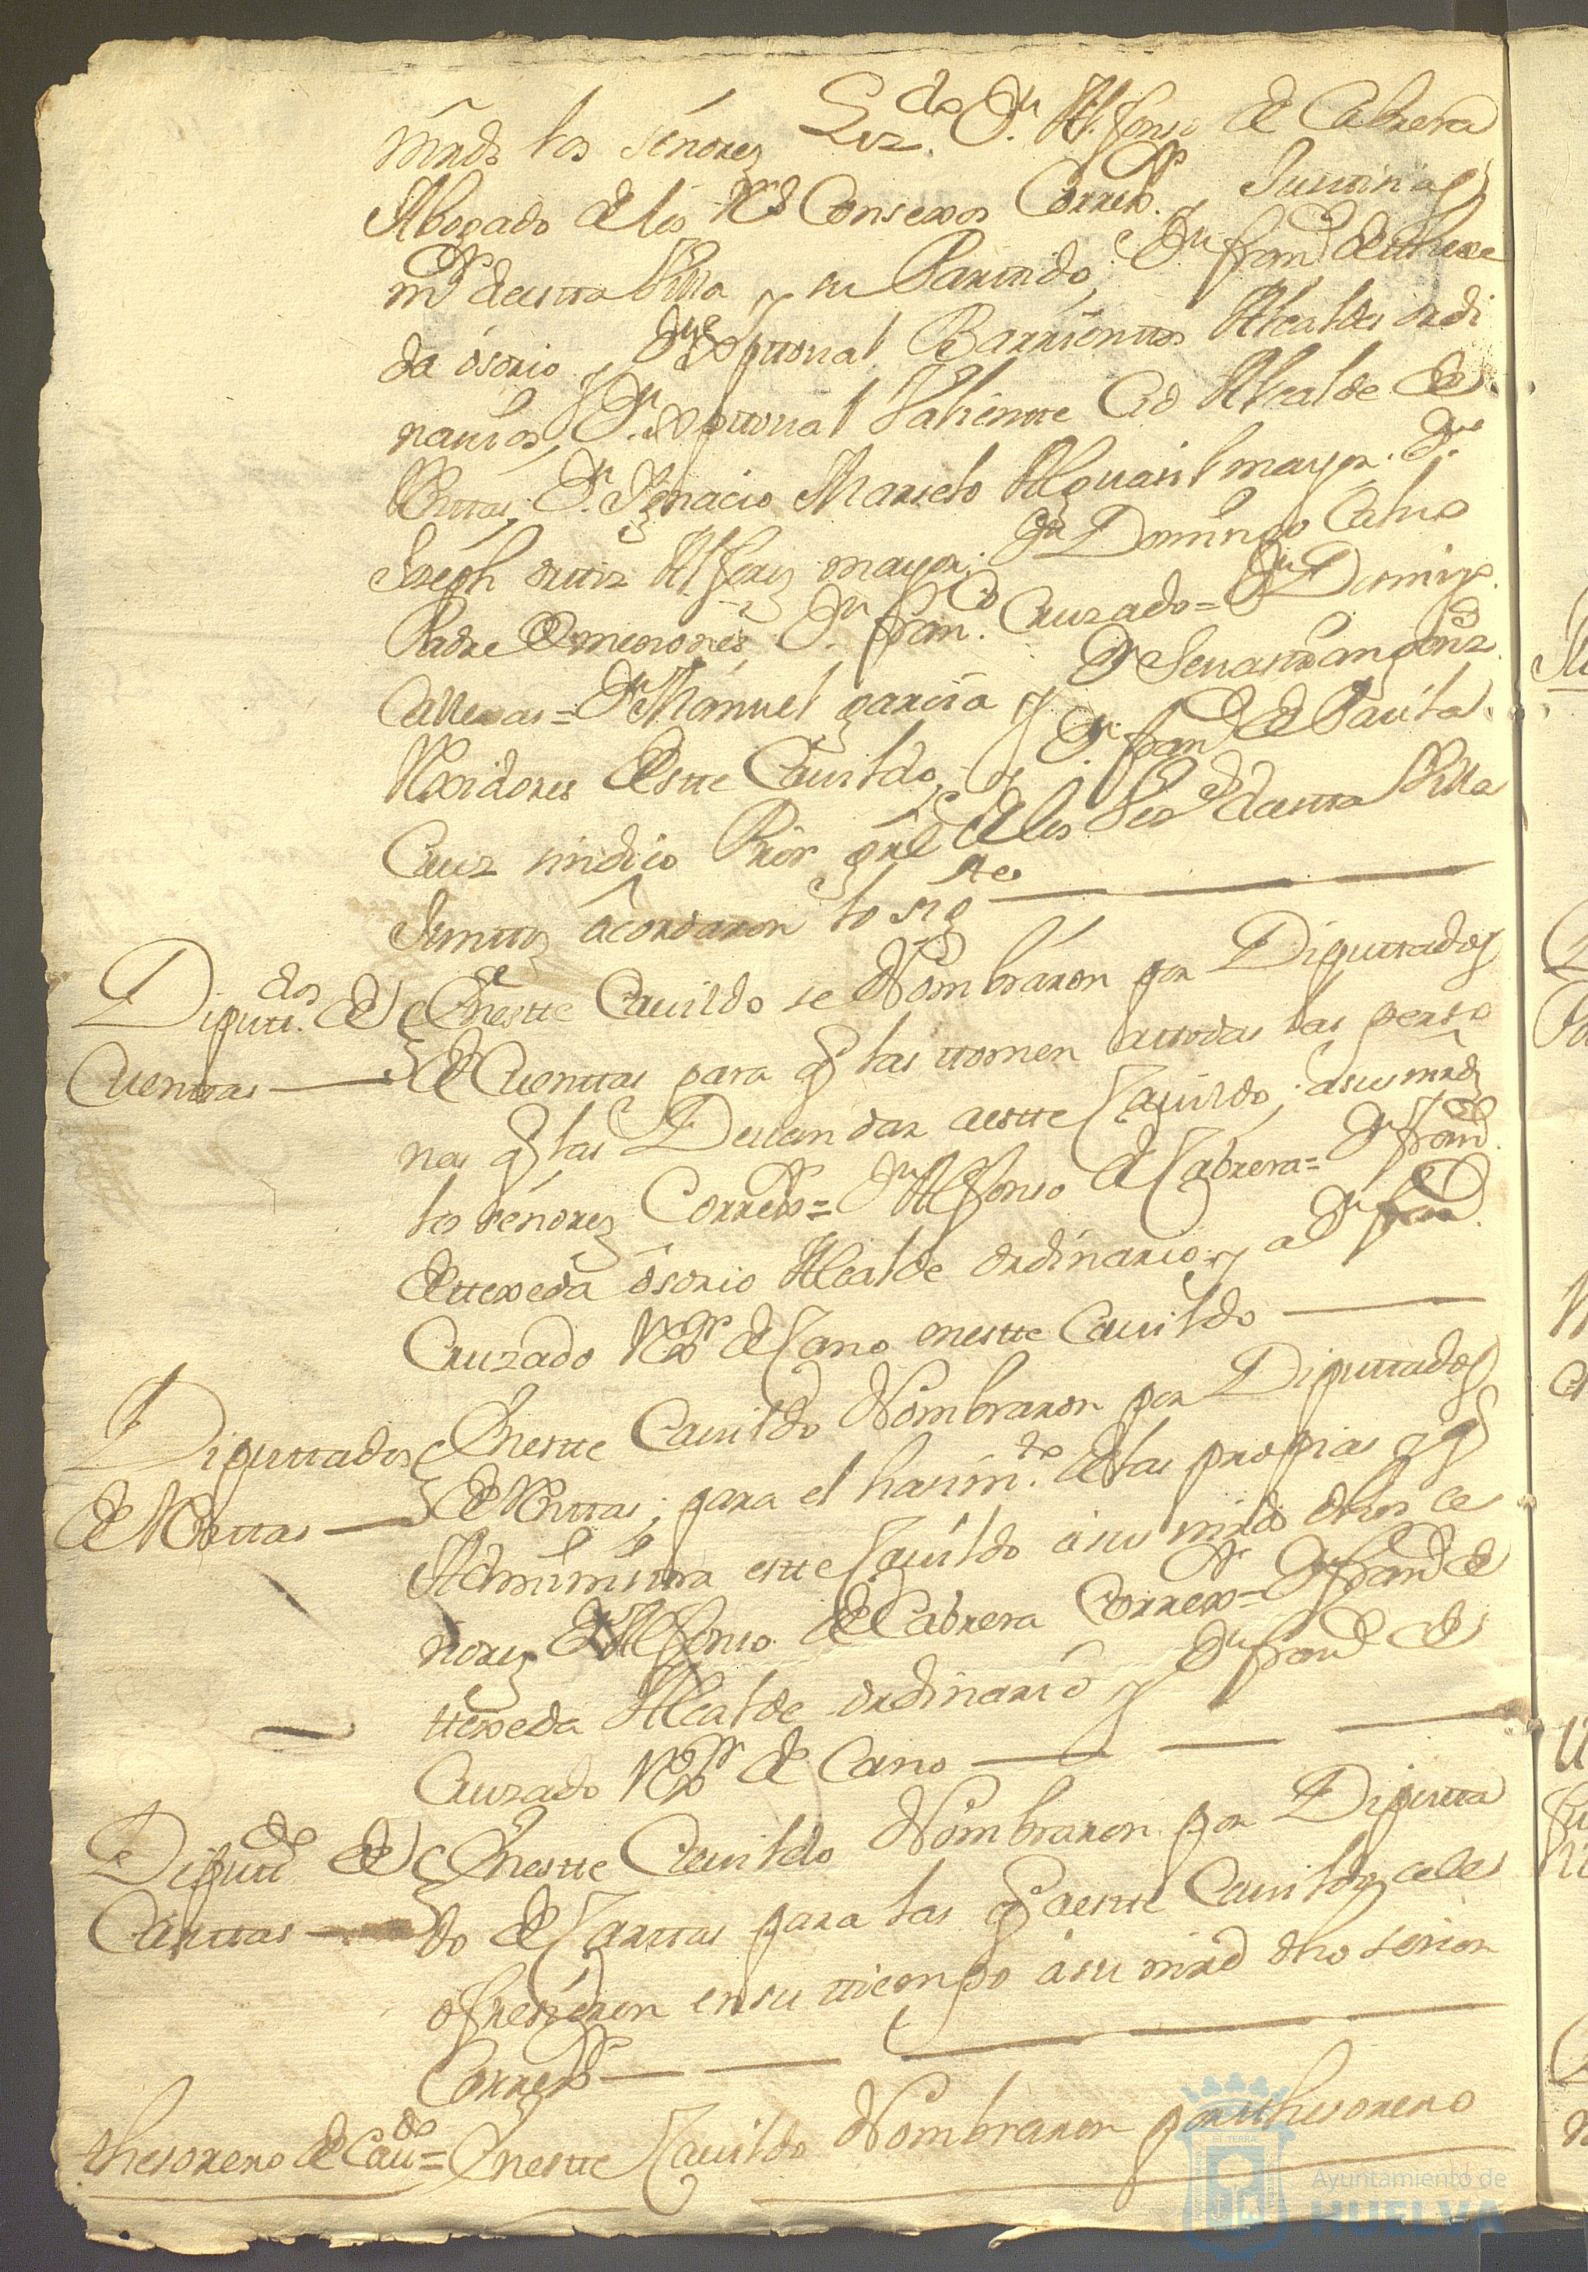 mrds los señores Lizdo. Dn. Alfonso de Cabrera
Abogado de los Rs Consexos Correxr. y Justizia
mr destta Villa y su Parttido, Dn franco dettexe
da ósorio y Dn Xpttoual Barrienttos Alcaldes ordi
narios, Dn. Xpttoual Valientte Cid Alcalde de
Dn. Ygnacio Marselo Alguasil mayor. Dn.
Joseph orttiz Alferez mayor; Dn Domingo Caluo
Padre de menores, Dn. franco. Cruzado= Dn Domingo
Callexas= Dn Manuel garcia y Dn Seuasttian gonz
Rexidores destte Cauildo, y Dn franco de Pauila
Cruz sindico Prór grãl de los Vezs destta Villa
Junttos acordaron lo sigte
Diputtdos. de
Cuenttas
Enestte Cauildo se Nombraron por Diputtados
de Cuenttas para q las ttomen attodas las perso
nas q las Deuan dar aestte Cauildo, asus mrds
los señores Correxr= Dn Alfonso de Cabrera= Dn franco.
dettexeda ósorio Alcalde ordinario, y a Dn franco.
Cruzado Rexr de Cano enestte Cauildo
Diputtados
de Renttas
Enestte Cauildo Nombraron por Diputtados
de Renttas, para el hasimto. de las propias y q
Administra estte Cauildo ásus mrds dhos se
nores Dn Alfonso de Cabrera Correxr= Dn franco de
ttexeda Alcalde ordinario y Dn franco de
Cruzado Rexr de Cano
Diputtdo de
Carttas
Enestte Cauildo Nombraron por Diputta
do de Carttas para las q aestte Cauildo se le
ofresieren en su ttiempo ásu mrd dho señor
Correxr
thesorero de Caudo=
Enestte Cauildo Nombraron por thesorero
Ayuntamiento de
HUELVA